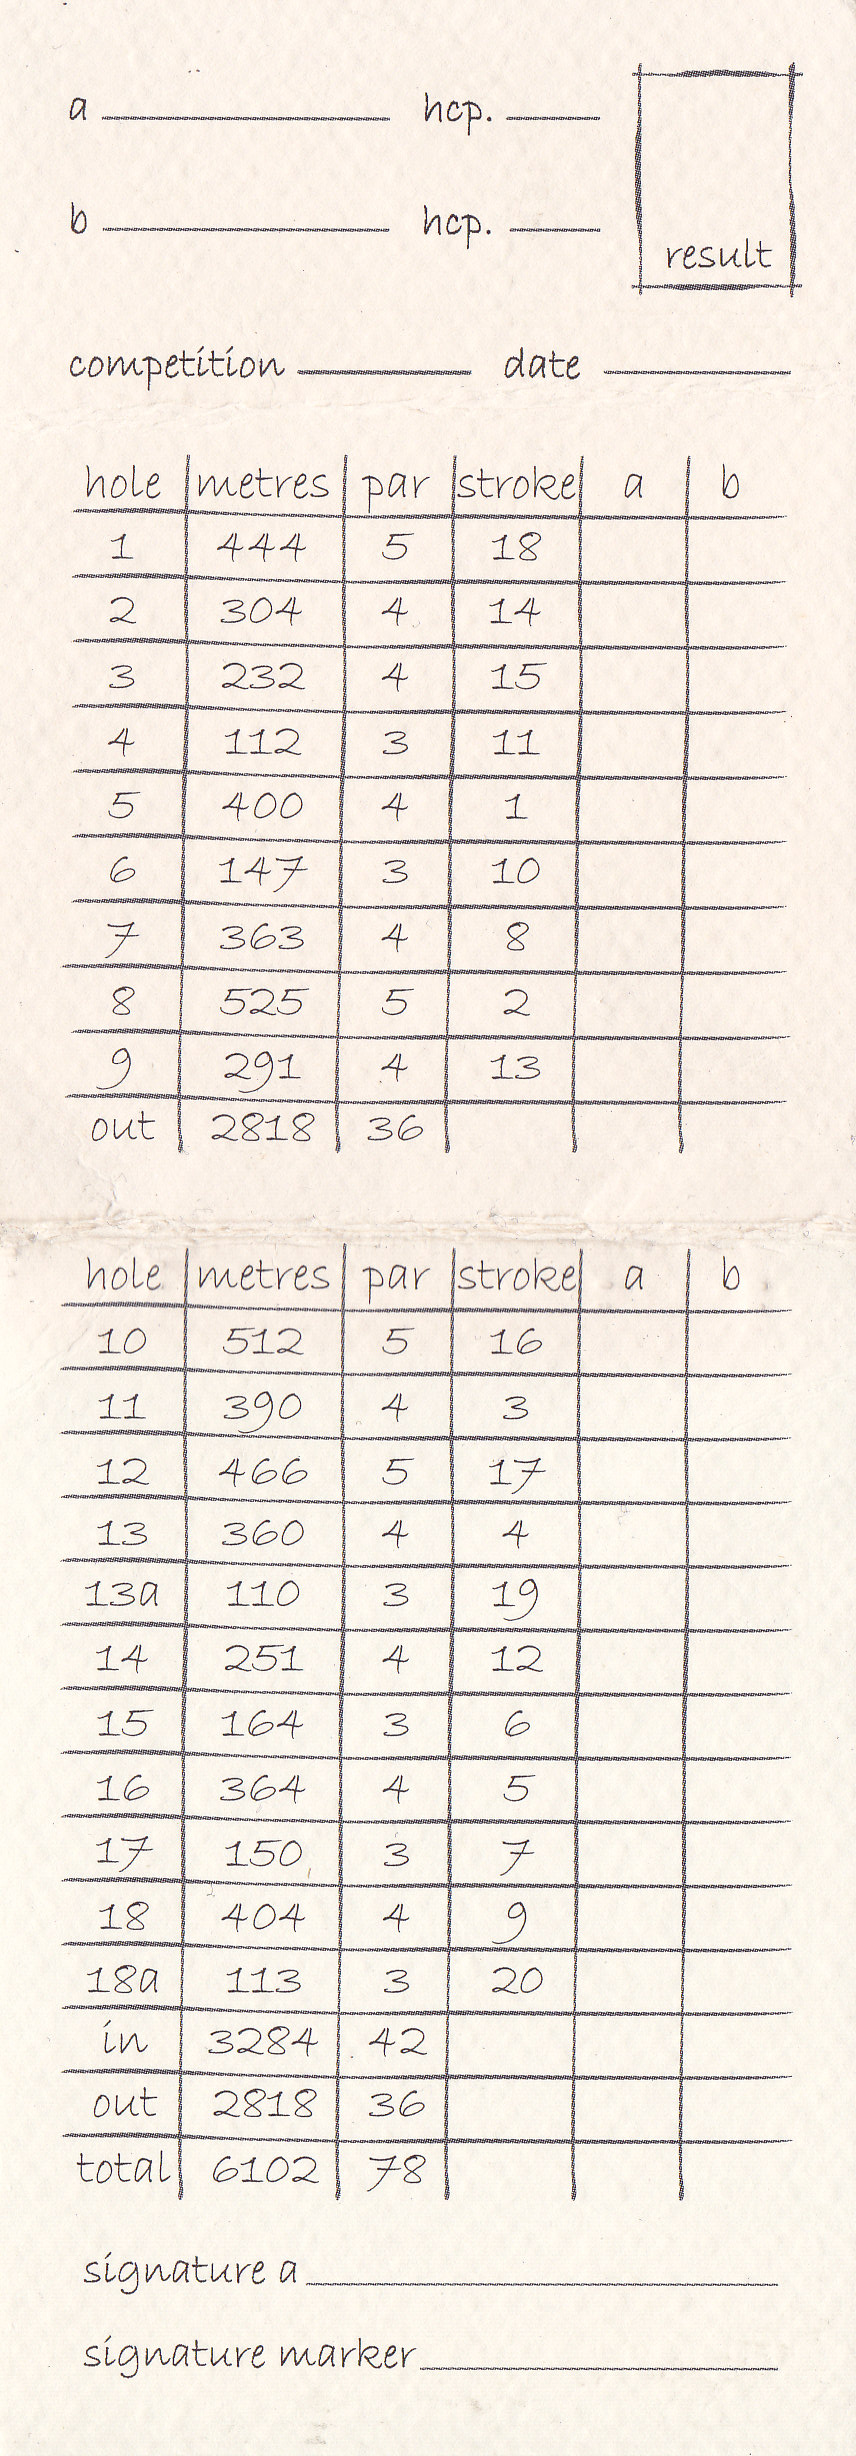 a hcp.
b hcp.
result
competition date
hole metres par stroke a b
1 444 5 18
2 304 4 14
3 232 4 15
4 112 3 11
5 400 4 1
6 147 3 10
7 363 4 8
8 525 5 2
9 291 4 13
out 2818 36
hole metres par stroke a b
10 512 5 16
11 390 4 3
12 466 5 17
13 360 4 4
13a 110 3 19
14 251 4 12
15 164 3 6
16 364 4 5
17 150 3 7
18 404 4 9
18a 113 3 20
in 3284 42
out 2818 36
total 6102 78
signature a
signature marker